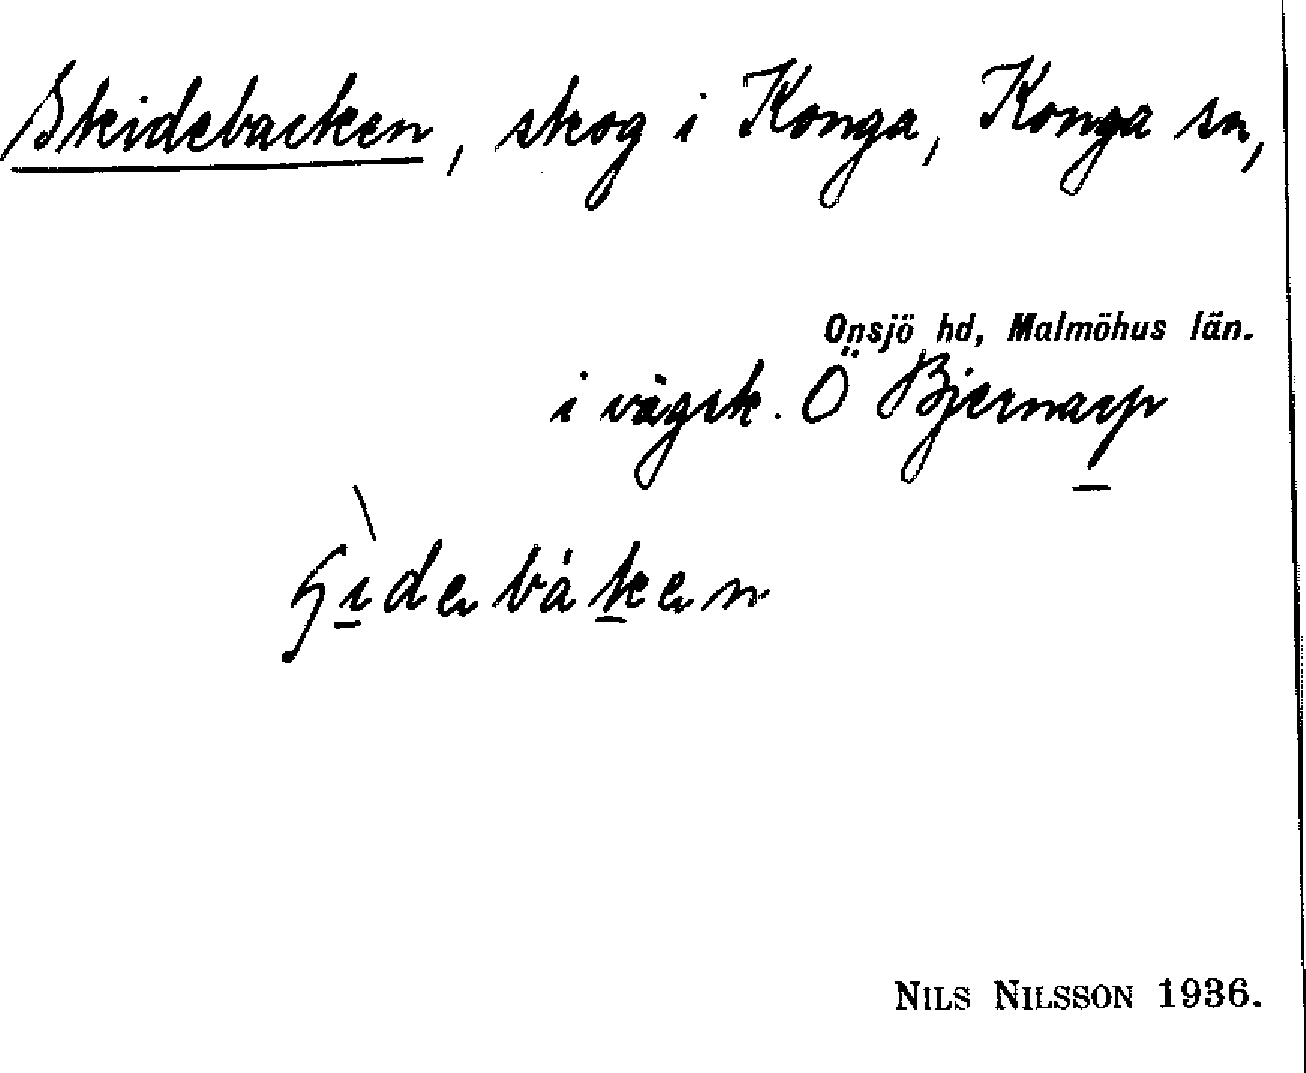 Skidebacken, skog i Konga, Konga sn,
Onsjö hd, Malmöhus län.
i vägsk. Ö Bjernarp
ʃìdebáken
NILS NILSSON 1936.